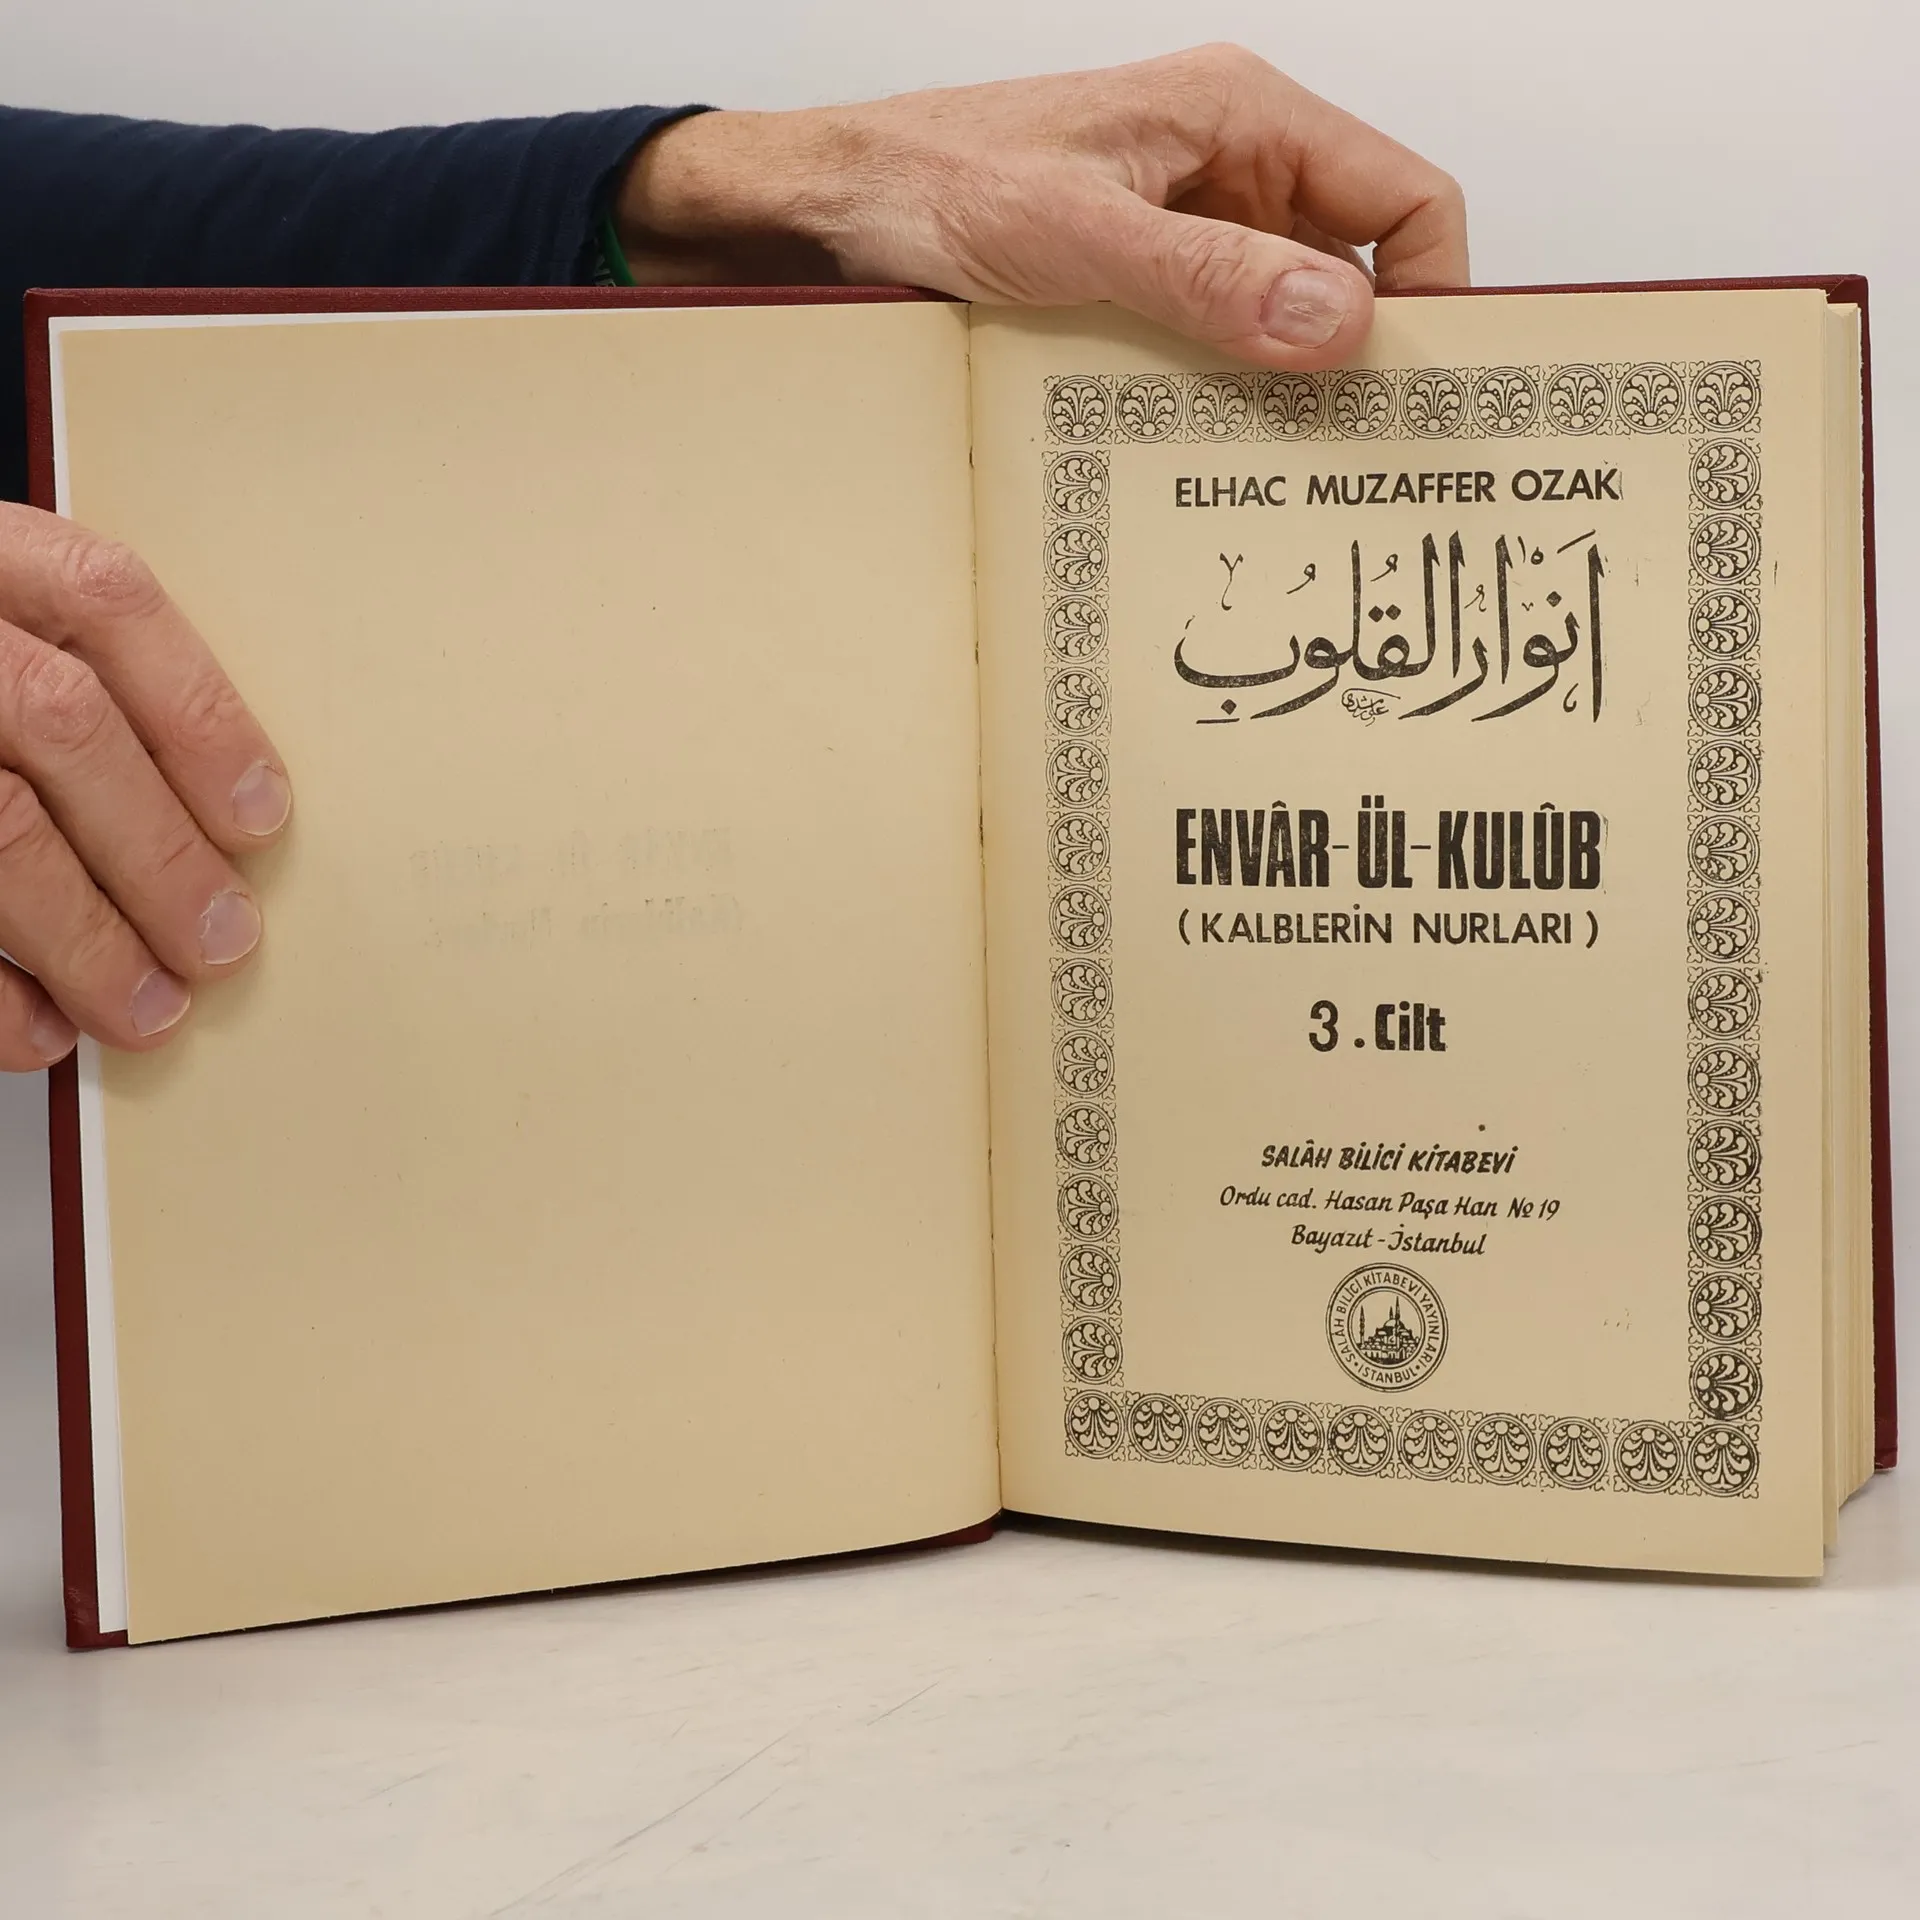 ELHAC MUZAFFER OZAK
اَنْوَارُ الْقُلُوبِ
ENVÂR-ÜL-KULÛB
(KALBLERİN NURLARI)
3.Cilt
SALÂH BİLİCİ KİTABEVİ
Ordu cad. Hasan Paşa Han № 19
Bayazıt-İstanbul
SALÂH BİLİCİ KİTABEVİ YAYINLARI • İSTANBUL •